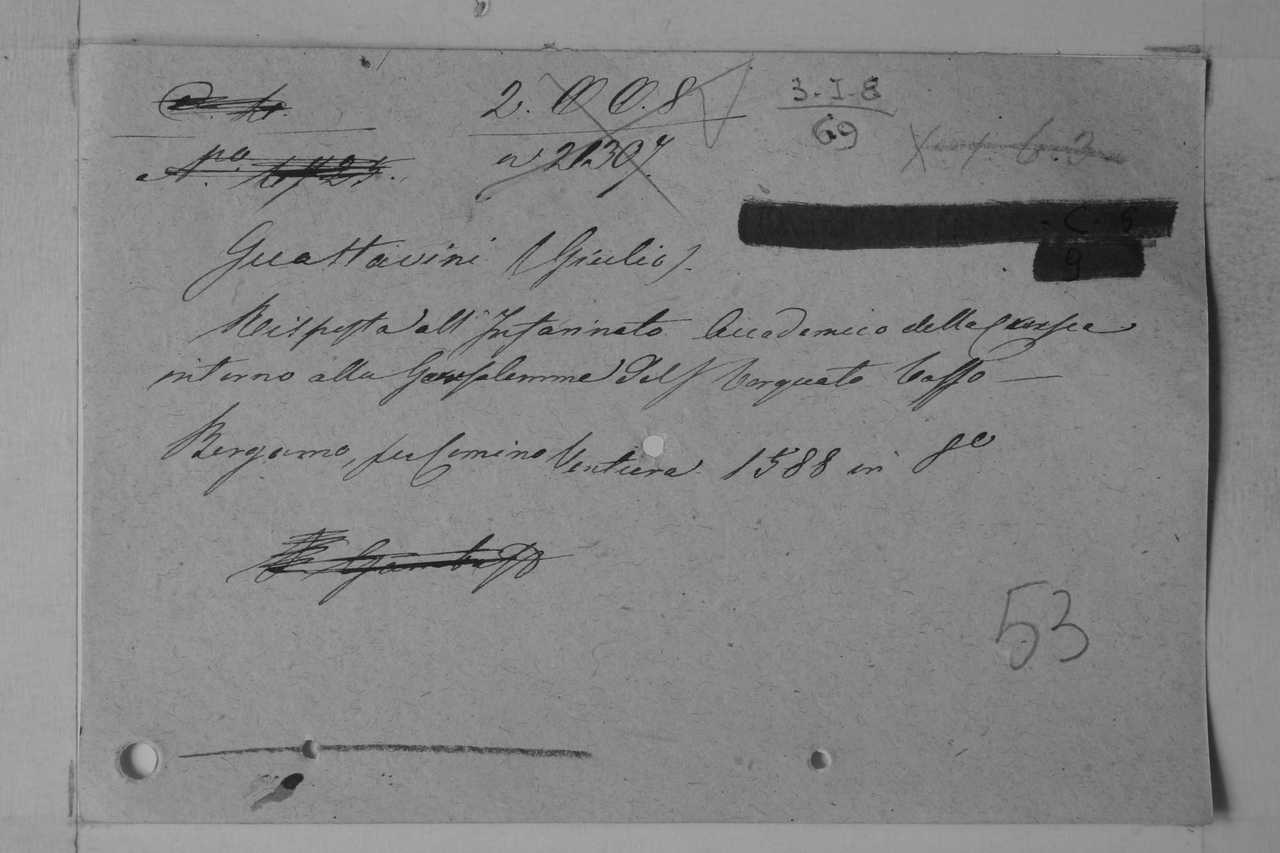 2. O O. 8
3-I-8
69
N.ro
n 21307
X 6.3
C 6
9
Guastavini (Giulio).
Risposta all' Infarinato Accademico della Crusca
intorno alla Gerusalemme del S Torquato Tasso —
Bergamo, per Comino Ventura 1588 in 8o
53